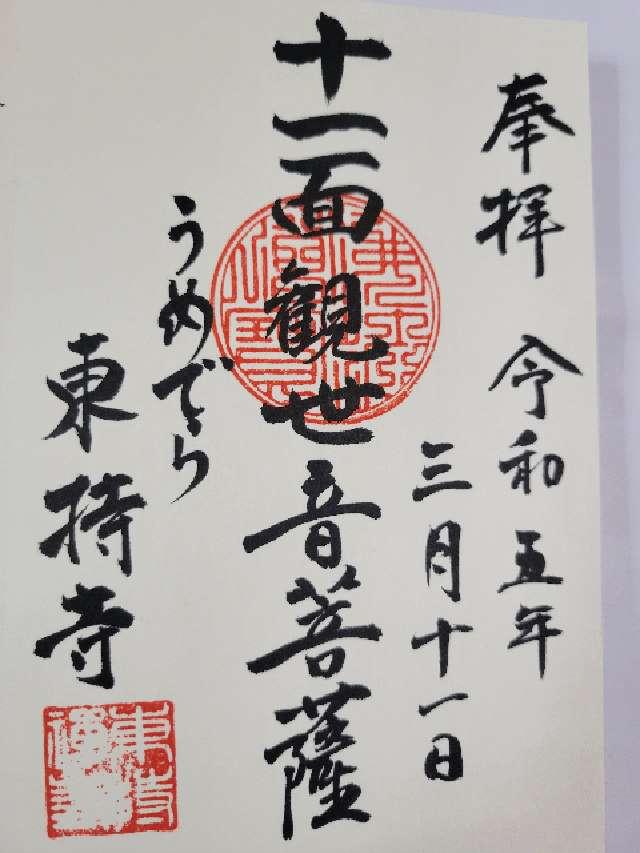 奉拝 令和五年
三月十一日
十一面観世音菩薩
うめでら
東持寺